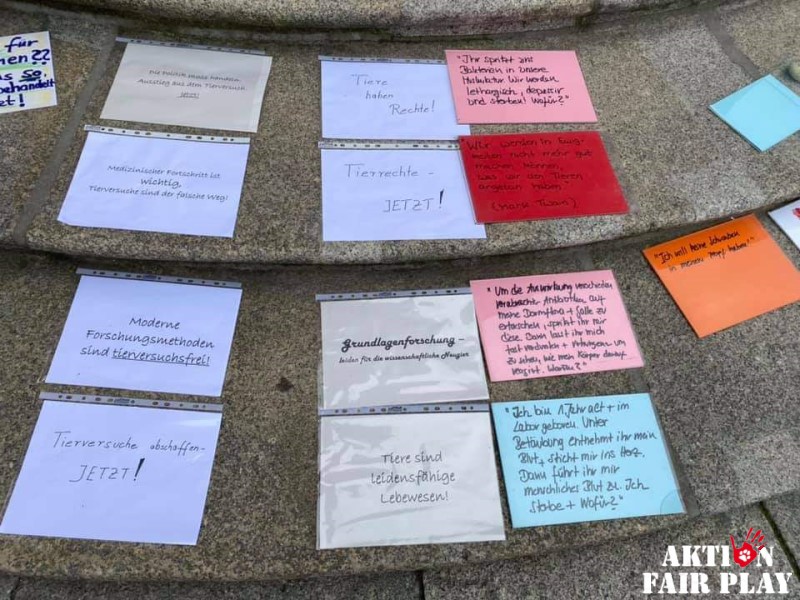 für
s so,
behandelt
et!
Die Politik muss handeln.
Ausstieg aus dem Tierversuch
jetzt!
Tiere
haben
Rechte!
"Ihr spritzt uns
Bakterien in unsere
Muskulatur. Wir werden
lethargisch, depressiv
und sterben! Wofür?"
Medizinischer Fortschritt ist
wichtig,
Tierversuche sind der falsche Weg!
Tierrechte -
JETZT!
"Wir werden in Ewig-
keiten nicht mehr gut
machen können,
was wir den Tieren
angetan haben."
(Mark Twain)
"Ich will keine Schrauben
in meinem Kopf haben!"
Moderne
Forschungsmethoden
sind tierversuchsfrei!
Grundlagenforschung -
leiden für die wissenschaftliche Neugier
"Um die Auswirkung verschieden
verabreichter Antibiotika auf
meine Darmflora + Galle zu
erforschen, spritzt ihr mir
diese. Dann lasst ihr mich
fast verdursten + verhungern um
zu sehen, wie mein Körper darauf
reagiert. Warum?"
Tierversuche abschaffen -
JETZT!
Tiere sind
leidensfähige
Lebewesen!
"Ich bin 1 Jahr alt + im
Labor geboren. Unter
Betäubung entnehmt ihr mein
Blut + sticht mir ins Herz.
Dann führt ihr mir
menschliches Blut zu. Ich
sterbe + Wofür?"
AKTION
FAIR PLAY